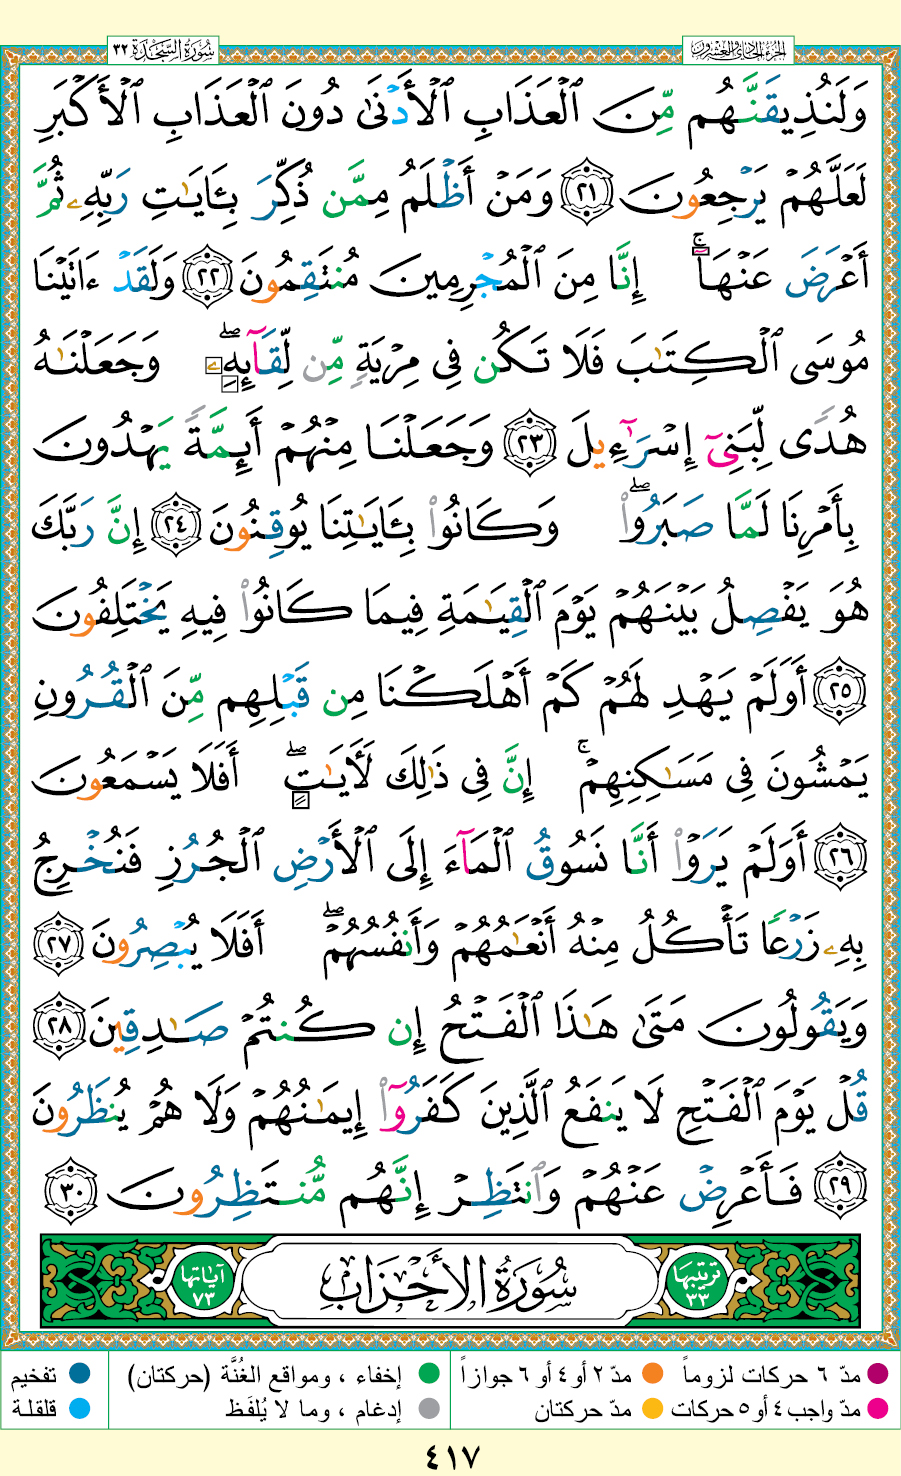 الجزء الحادي والعشرون
سُورَةُ السَّجْدَةِ ٣٢
وَلَنُذِيقَنَّهُم مِّنَ ٱلْعَذَابِ ٱلْأَدْنَىٰ دُونَ ٱلْعَذَابِ ٱلْأَكْبَرِ
لَعَلَّهُمْ يَرْجِعُونَ ٢١ وَمَنْ أَظْلَمُ مِمَّن ذُكِّرَ بِـَٔايَـٰتِ رَبِّهِۦ ثُمَّ
أَعْرَضَ عَنْهَآ ۚ إِنَّا مِنَ ٱلْمُجْرِمِينَ مُنتَقِمُونَ ٢٢ وَلَقَدْ ءَاتَيْنَا
مُوسَى ٱلْكِتَـٰبَ فَلَا تَكُن فِى مِرْيَةٍ مِّن لِّقَآئِهِۦ ۖ وَجَعَلْنَـٰهُ
هُدًى لِّبَنِىٓ إِسْرَٰٓءِيلَ ٢٣ وَجَعَلْنَا مِنْهُمْ أَئِمَّةً يَهْدُونَ
بِأَمْرِنَا لَمَّا صَبَرُوا۟ ۖ وَكَانُوا۟ بِـَٔايَـٰتِنَا يُوقِنُونَ ٢٤ إِنَّ رَبَّكَ
هُوَ يَفْصِلُ بَيْنَهُمْ يَوْمَ ٱلْقِيَـٰمَةِ فِيمَا كَانُوا۟ فِيهِ يَخْتَلِفُونَ
٢٥ أَوَلَمْ يَهْدِ لَهُمْ كَمْ أَهْلَكْنَا مِن قَبْلِهِم مِّنَ ٱلْقُرُونِ
يَمْشُونَ فِى مَسَـٰكِنِهِمْ ۚ إِنَّ فِى ذَٰلِكَ لَـَٔايَـٰتٍ ۖ أَفَلَا يَسْمَعُونَ
٢٦ أَوَلَمْ يَرَوْا۟ أَنَّا نَسُوقُ ٱلْمَآءَ إِلَى ٱلْأَرْضِ ٱلْجُرُزِ فَنُخْرِجُ
بِهِۦ زَرْعًا تَأْكُلُ مِنْهُ أَنْعَـٰمُهُمْ وَأَنفُسُهُمْ ۖ أَفَلَا يُبْصِرُونَ ٢٧
وَيَقُولُونَ مَتَىٰ هَـٰذَا ٱلْفَتْحُ إِن كُنتُمْ صَـٰدِقِينَ ٢٨
قُلْ يَوْمَ ٱلْفَتْحِ لَا يَنفَعُ ٱلَّذِينَ كَفَرُوٓا۟ إِيمَـٰنُهُمْ وَلَا هُمْ يُنظَرُونَ
٢٩ فَأَعْرِضْ عَنْهُمْ وَٱنتَظِرْ إِنَّهُم مُّنتَظِرُونَ ٣٠
ترتيبها ٣٣ سُورَةُ الأَحْزَابِ آياتها ٧٣
مدّ ٦ حركات لزوماً مدّ ٢ أو ٤ أو ٦ جوازاً إخفاء ، ومواقع الغُنَّة (حركتان) تفخيم
مدّ واجب ٤ أو ٥ حركات مدّ حركتان إدغام ، وما لا يُلفَظ قلقلة
٤١٧